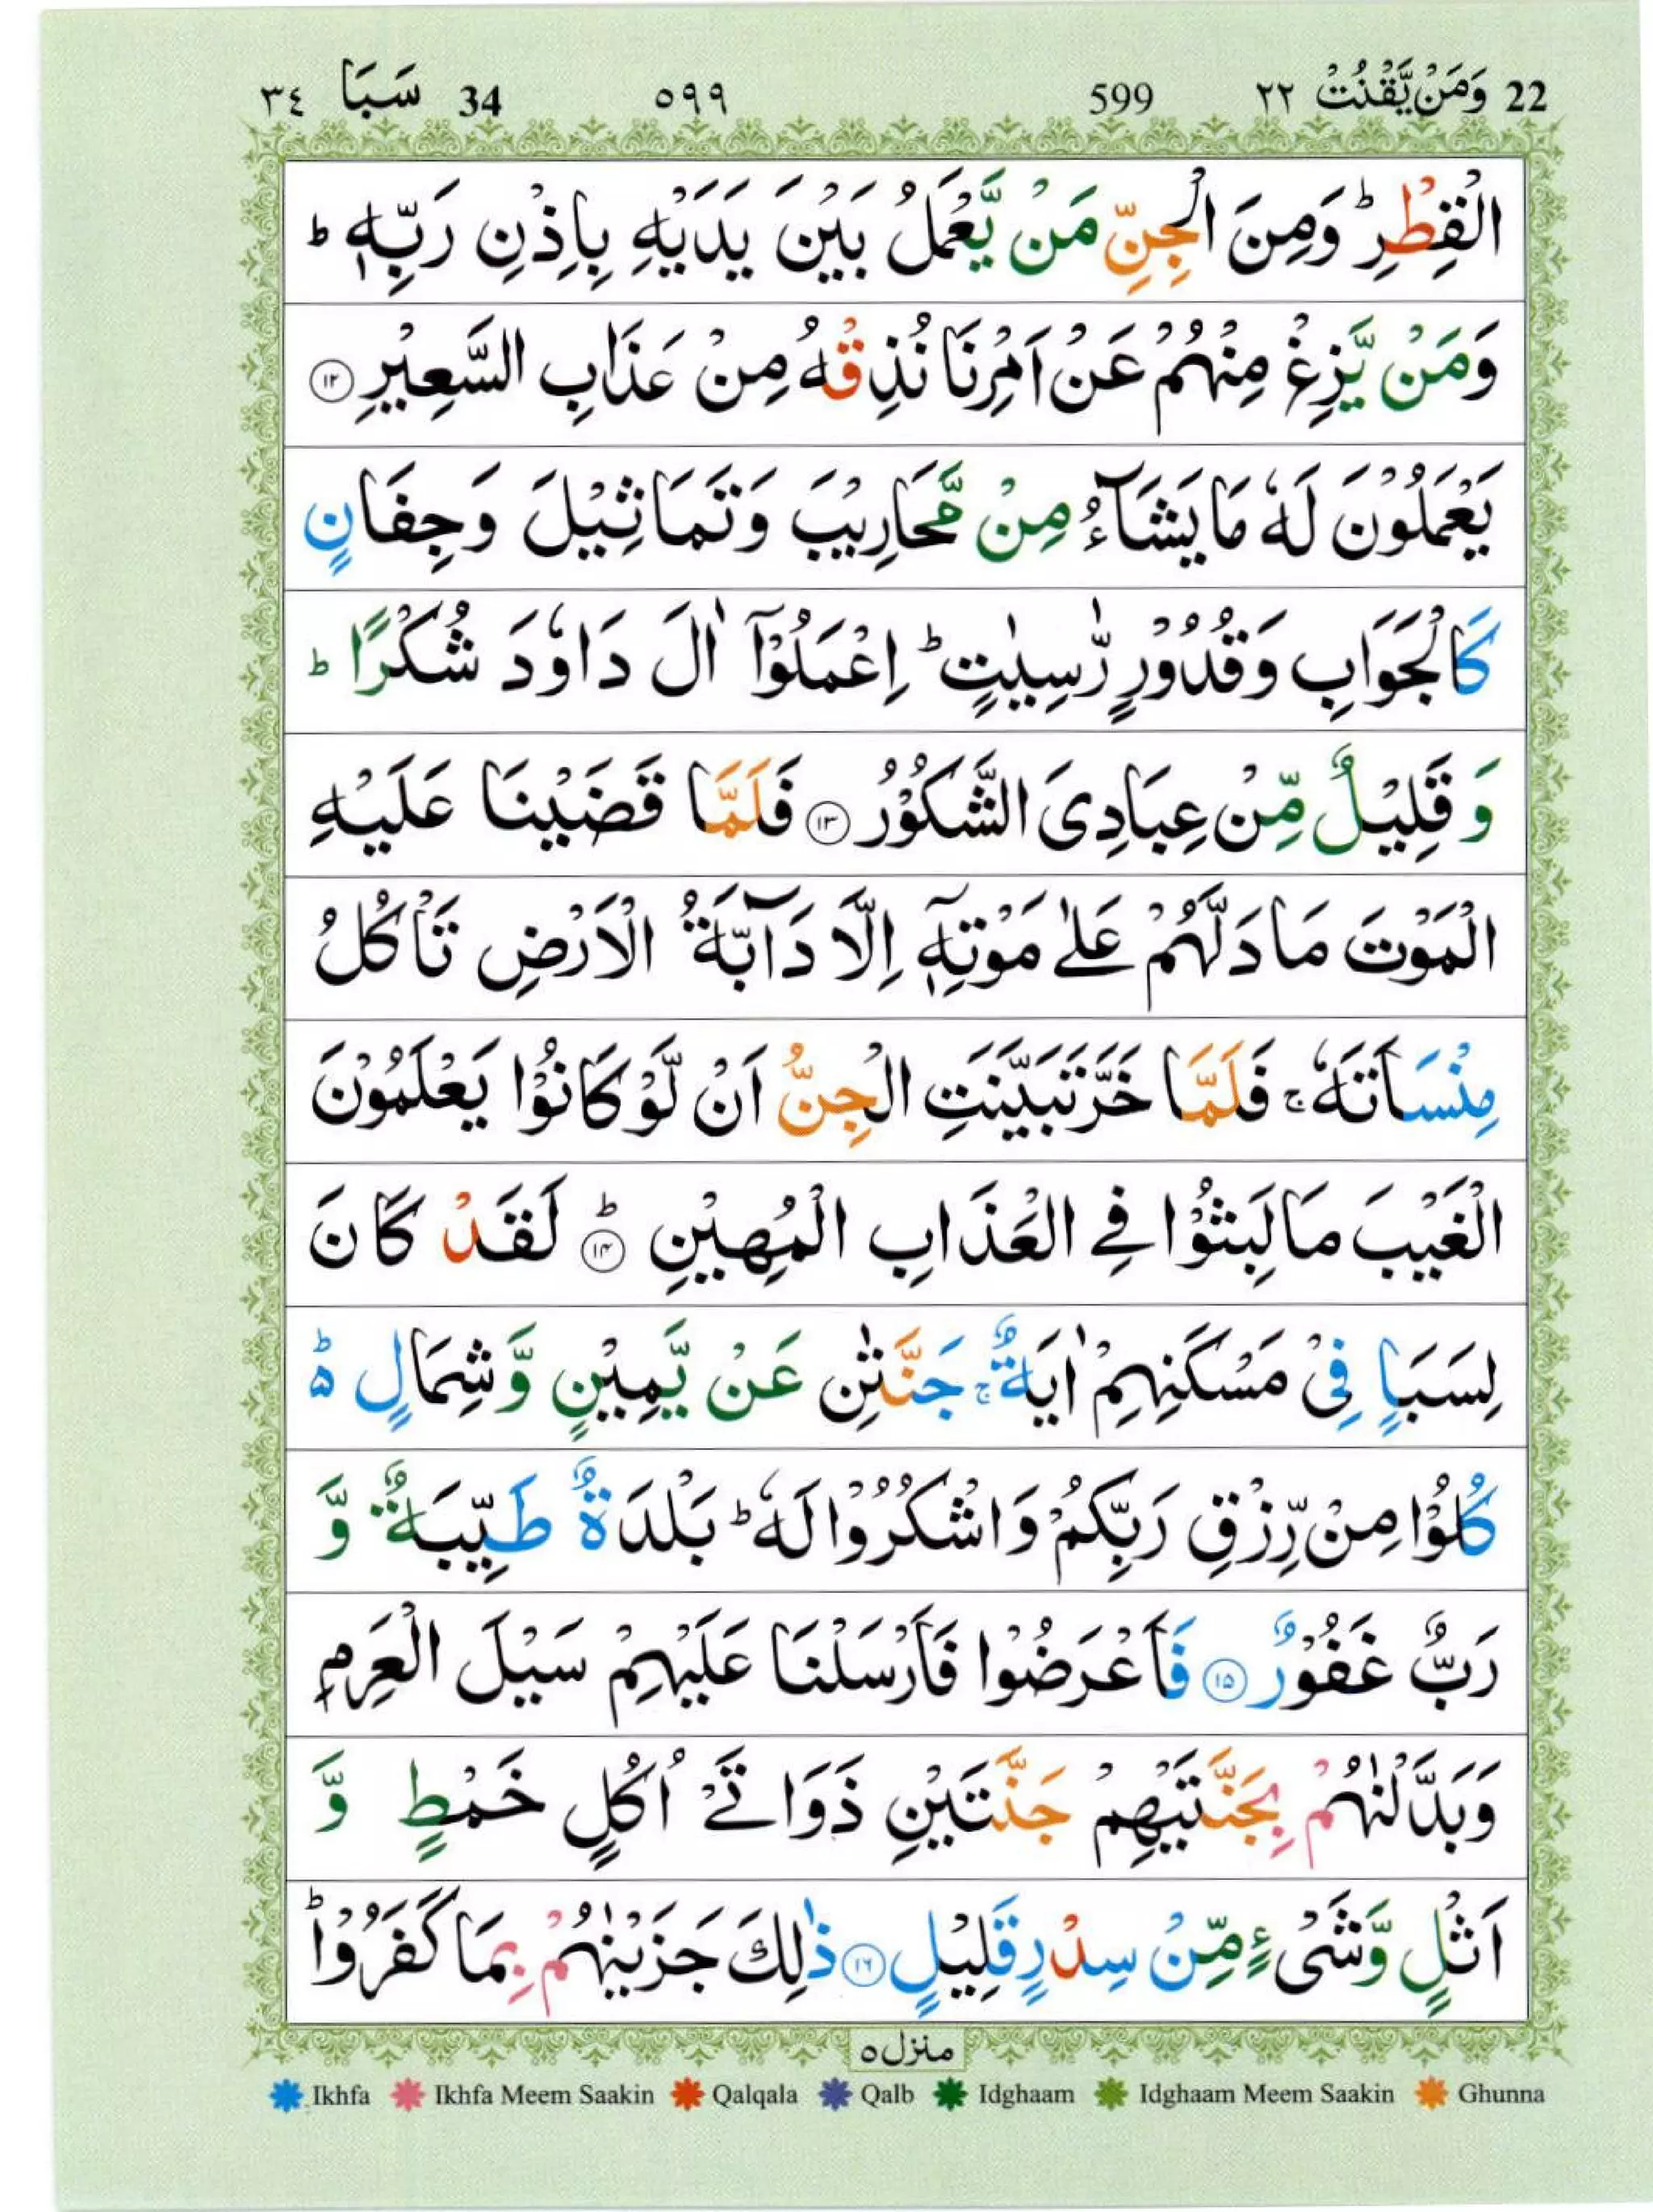 22 وَمَنْ يَّقْنُتْ ٢٢ 599 ٥٩٩ 34 سَبَا ٣٤
الْقِطْرِ ؕ وَمِنَ الْجِنِّ مَنْ يَّعْمَلُ بَيْنَ يَدَيْهِ بِاِذْنِ رَبِّهٖ ؕ
وَمَنْ يَّزِغْ مِنْهُمْ عَنْ اَمْرِنَا نُذِقْهُ مِنْ عَذَابِ السَّعِيْرِ ۝۱۲
يَعْمَلُوْنَ لَهٗ مَا يَشَآءُ مِنْ مَّحَارِيْبَ وَتَمَاثِيْلَ وَجِفَانٍ
كَالْجَوَابِ وَقُدُوْرٍ رّٰسِيٰتٍ ؕ اِعْمَلُوْۤا اٰلَ دَاوٗدَ شُكْرًا ؕ
وَقَلِيْلٌ مِّنْ عِبَادِىَ الشَّكُوْرُ ۝۱۳ فَلَمَّا قَضَيْنَا عَلَيْهِ
الْمَوْتَ مَا دَلَّهُمْ عَلٰى مَوْتِهٖۤ اِلَّا دَآبَّةُ الْاَرْضِ تَاْكُلُ
مِنْسَاَتَهٗ ۚ فَلَمَّا خَرَّ تَبَيَّنَتِ الْجِنُّ اَنْ لَّوْ كَانُوْا يَعْلَمُوْنَ
الْغَيْبَ مَا لَبِثُوْا فِى الْعَذَابِ الْمُهِيْنِ ؕ ۝۱۴ لَقَدْ كَانَ
لِسَبَاٍ فِىْ مَسْكَنِهِمْ اٰيَةٌ ۚ جَنَّتٰنِ عَنْ يَّمِيْنٍ وَّشِمَالٍ ؕ۬
كُلُوْا مِنْ رِّزْقِ رَبِّكُمْ وَاشْكُرُوْا لَهٗ ؕ بَلْدَةٌ طَيِّبَةٌ وَّ
رَبٌّ غَفُوْرٌ ۝۱۵ فَاَعْرَضُوْا فَاَرْسَلْنَا عَلَيْهِمْ سَيْلَ الْعَرِمِ
وَبَدَّلْنٰهُمْ بِجَنَّتَيْهِمْ جَنَّتَيْنِ ذَوَاتَىْ اُكُلٍ خَمْطٍ وَّ
اَثْلٍ وَّشَىْءٍ مِّنْ سِدْرٍ قَلِيْلٍ ۝۱۶ ذٰلِكَ جَزَيْنٰهُمْ بِمَا كَفَرُوْا ؕ
منزل ٥
Ikhfa Ikhfa Meem Saakin Qalqala Qalb Idghaam Idghaam Meem Saakin Ghunna